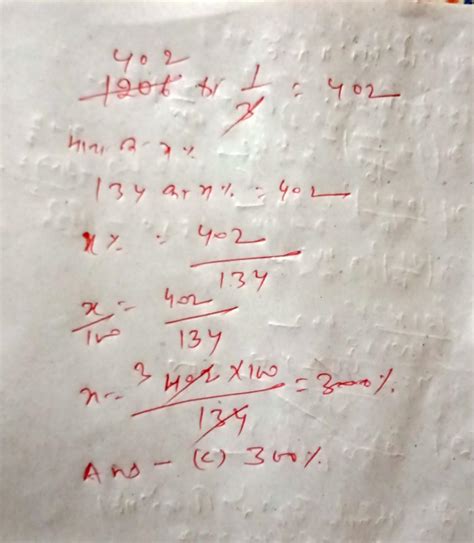 402
1206 का 1/3 = 402
माना कि x%
134 का x% = 402
x% = 402/134
x/100 = 402/134
x = 3 402 × 100 / 134 = 300%
Ans - (c) 300%